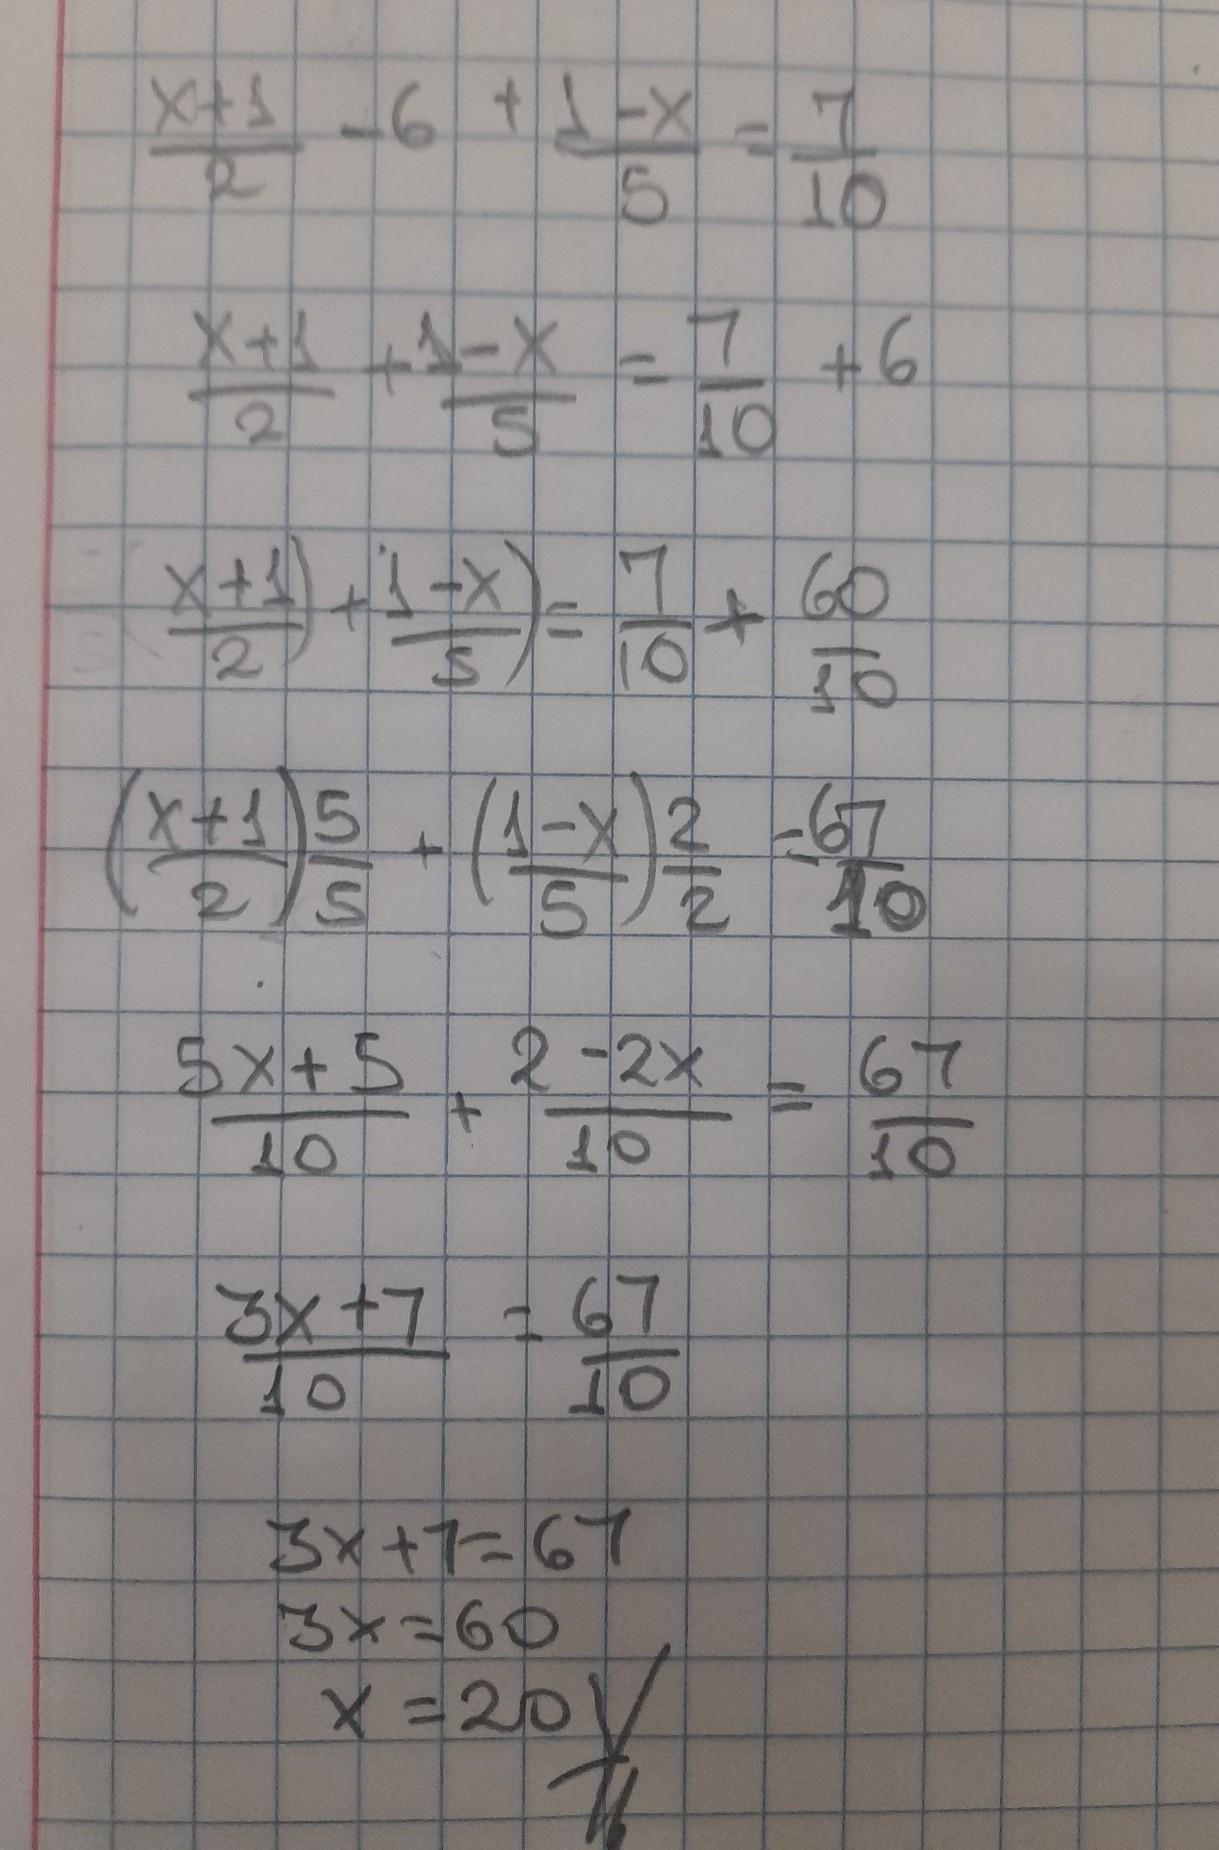 (x+1)/2 - 6 + (1-x)/5 = 7/10
(x+1)/2 + (1-x)/5 = 7/10 + 6
(x+1)/2) + (1-x)/5) = 7/10 + 60/10
((x+1)/2) 5/5 + ((1-x)/5) 2/2 = 67/10
(5x+5)/10 + (2-2x)/10 = 67/10
(3x+7)/10 = 67/10
3x+7=67
3x=60
x=20